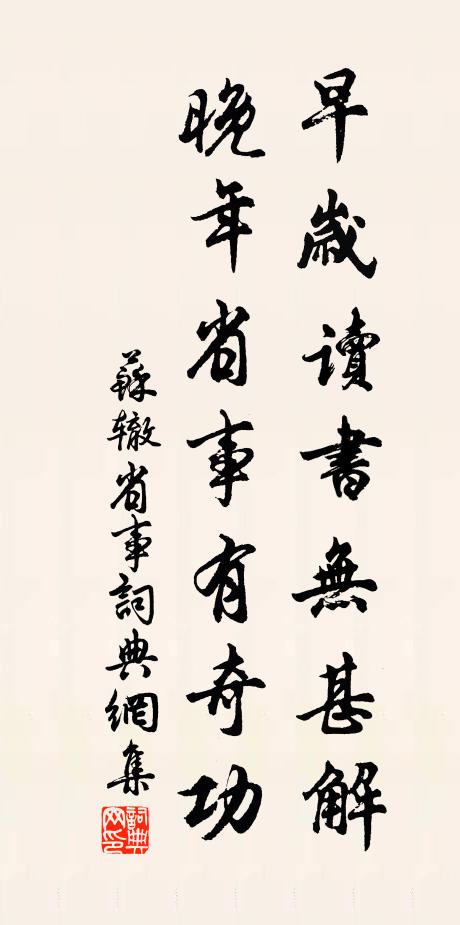 早歲讀書無甚解
晚年省事有奇功
蘇轍省事詞典網集
詞典
网印